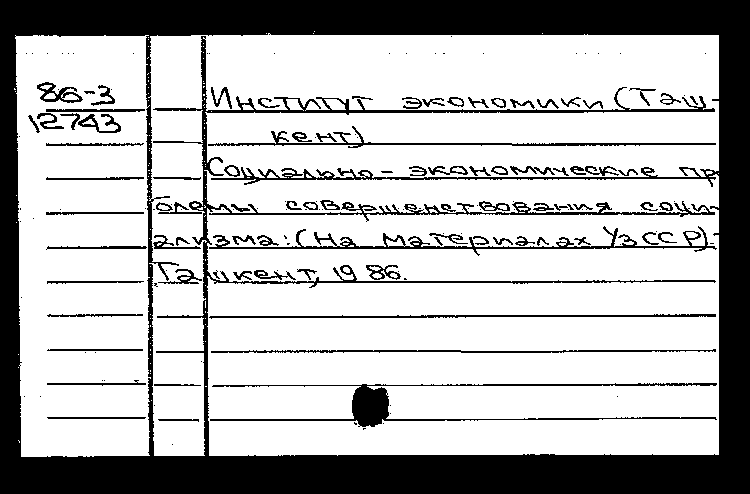 86-3
12743
Институт экономики (Таш-
кент).
Социально-экономические пр
блемы совершенствования соци-
ализма: (На материалах УзССР).-
Ташкент, 1986.